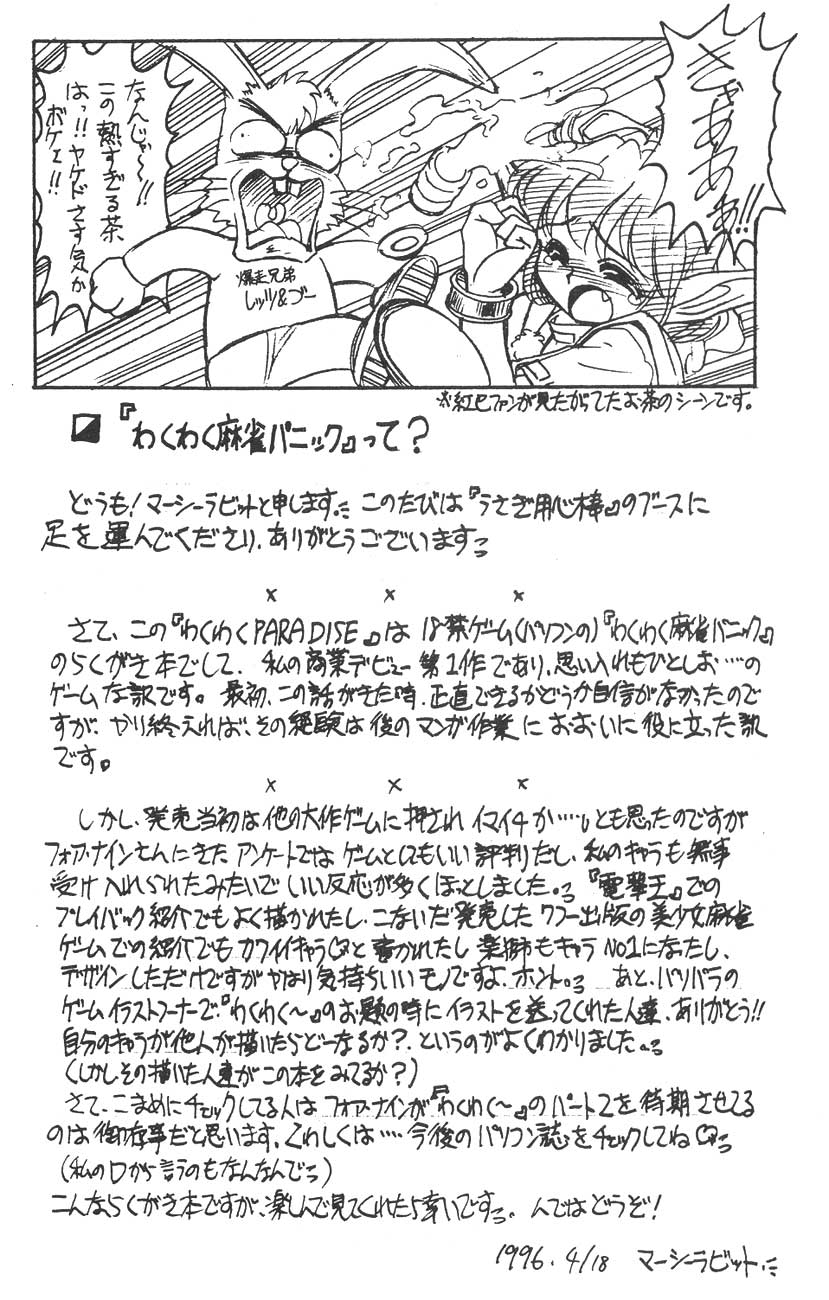 きゃあああ!!
なんじゃ〜!!
この熱すぎる茶
はっ!!ヤケドさす気か
ボケェ!!
爆走兄弟
レッツ&ゴー
※紅巳ファンが見たがってたお茶のシーンです。
『わくわく麻雀パニック』って?
どうも!マーシーラビットと申します。このたびは『うさぎ用心棒』のブースに
足を運んでくださり、ありがとうございます
× × ×
さて、この『わくわくPARADISE』は18禁ゲーム(パソコンの)『わくわく麻雀パニック』
のらくがき本でして、私の商業デビュー第1作であり、思い入れもひとしお……の
ゲームな訳です。最初、この話がきた時、正直できるかどうか自信がなかったので
すが、やり終えれば、その経験は後のマンガ作業におおいに役に立った訳
です。
× × ×
しかし、発売当初は他の大作ゲームに押されイマイチか……とも思ったのですが
フォア・ナインさんにきたアンケートではゲームとしてもいい評判だし、私のキャラも無事
受け入れられたみたいでいい反応が多くほっとしました。『電撃王』での
プレイバック紹介でもよく描かれたし、こないだ発売したワニー出版の美少女麻雀
ゲームでの紹介でもカワイイキャラ♡と書かれたし薬師もキャラNO1になったし、
デザインしただけですがやはり気持ちいいモノですよ、ホント。あと、パソパラの
ゲームイラストコーナーで『わくわく〜』のお題の時にイラストを送ってくれた人達、ありがとう!!
自分のキャラが他人が描いたらどーなるか?、というのがよくわかりました
(しかしその描いた人達がこの本をみてるか?)
さて、こまめにチェックしてる人はフォア・ナインが『わくわく〜』のパート2を待期させてる
のは御存事だと思います。くわしくは……今後のパソコン誌をチェックしてね♡
(私の口から言うのもなんなんで)
こんならくがき本ですが、楽しんで見てくれたら幸いです。んではどうぞ!
1996.4/18 マーシーラビット